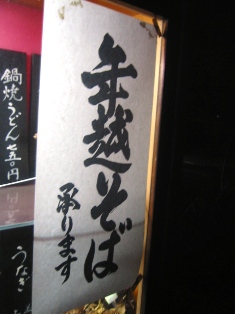 年越そば
承ります
鍋焼うどん七五〇円
うなぎ